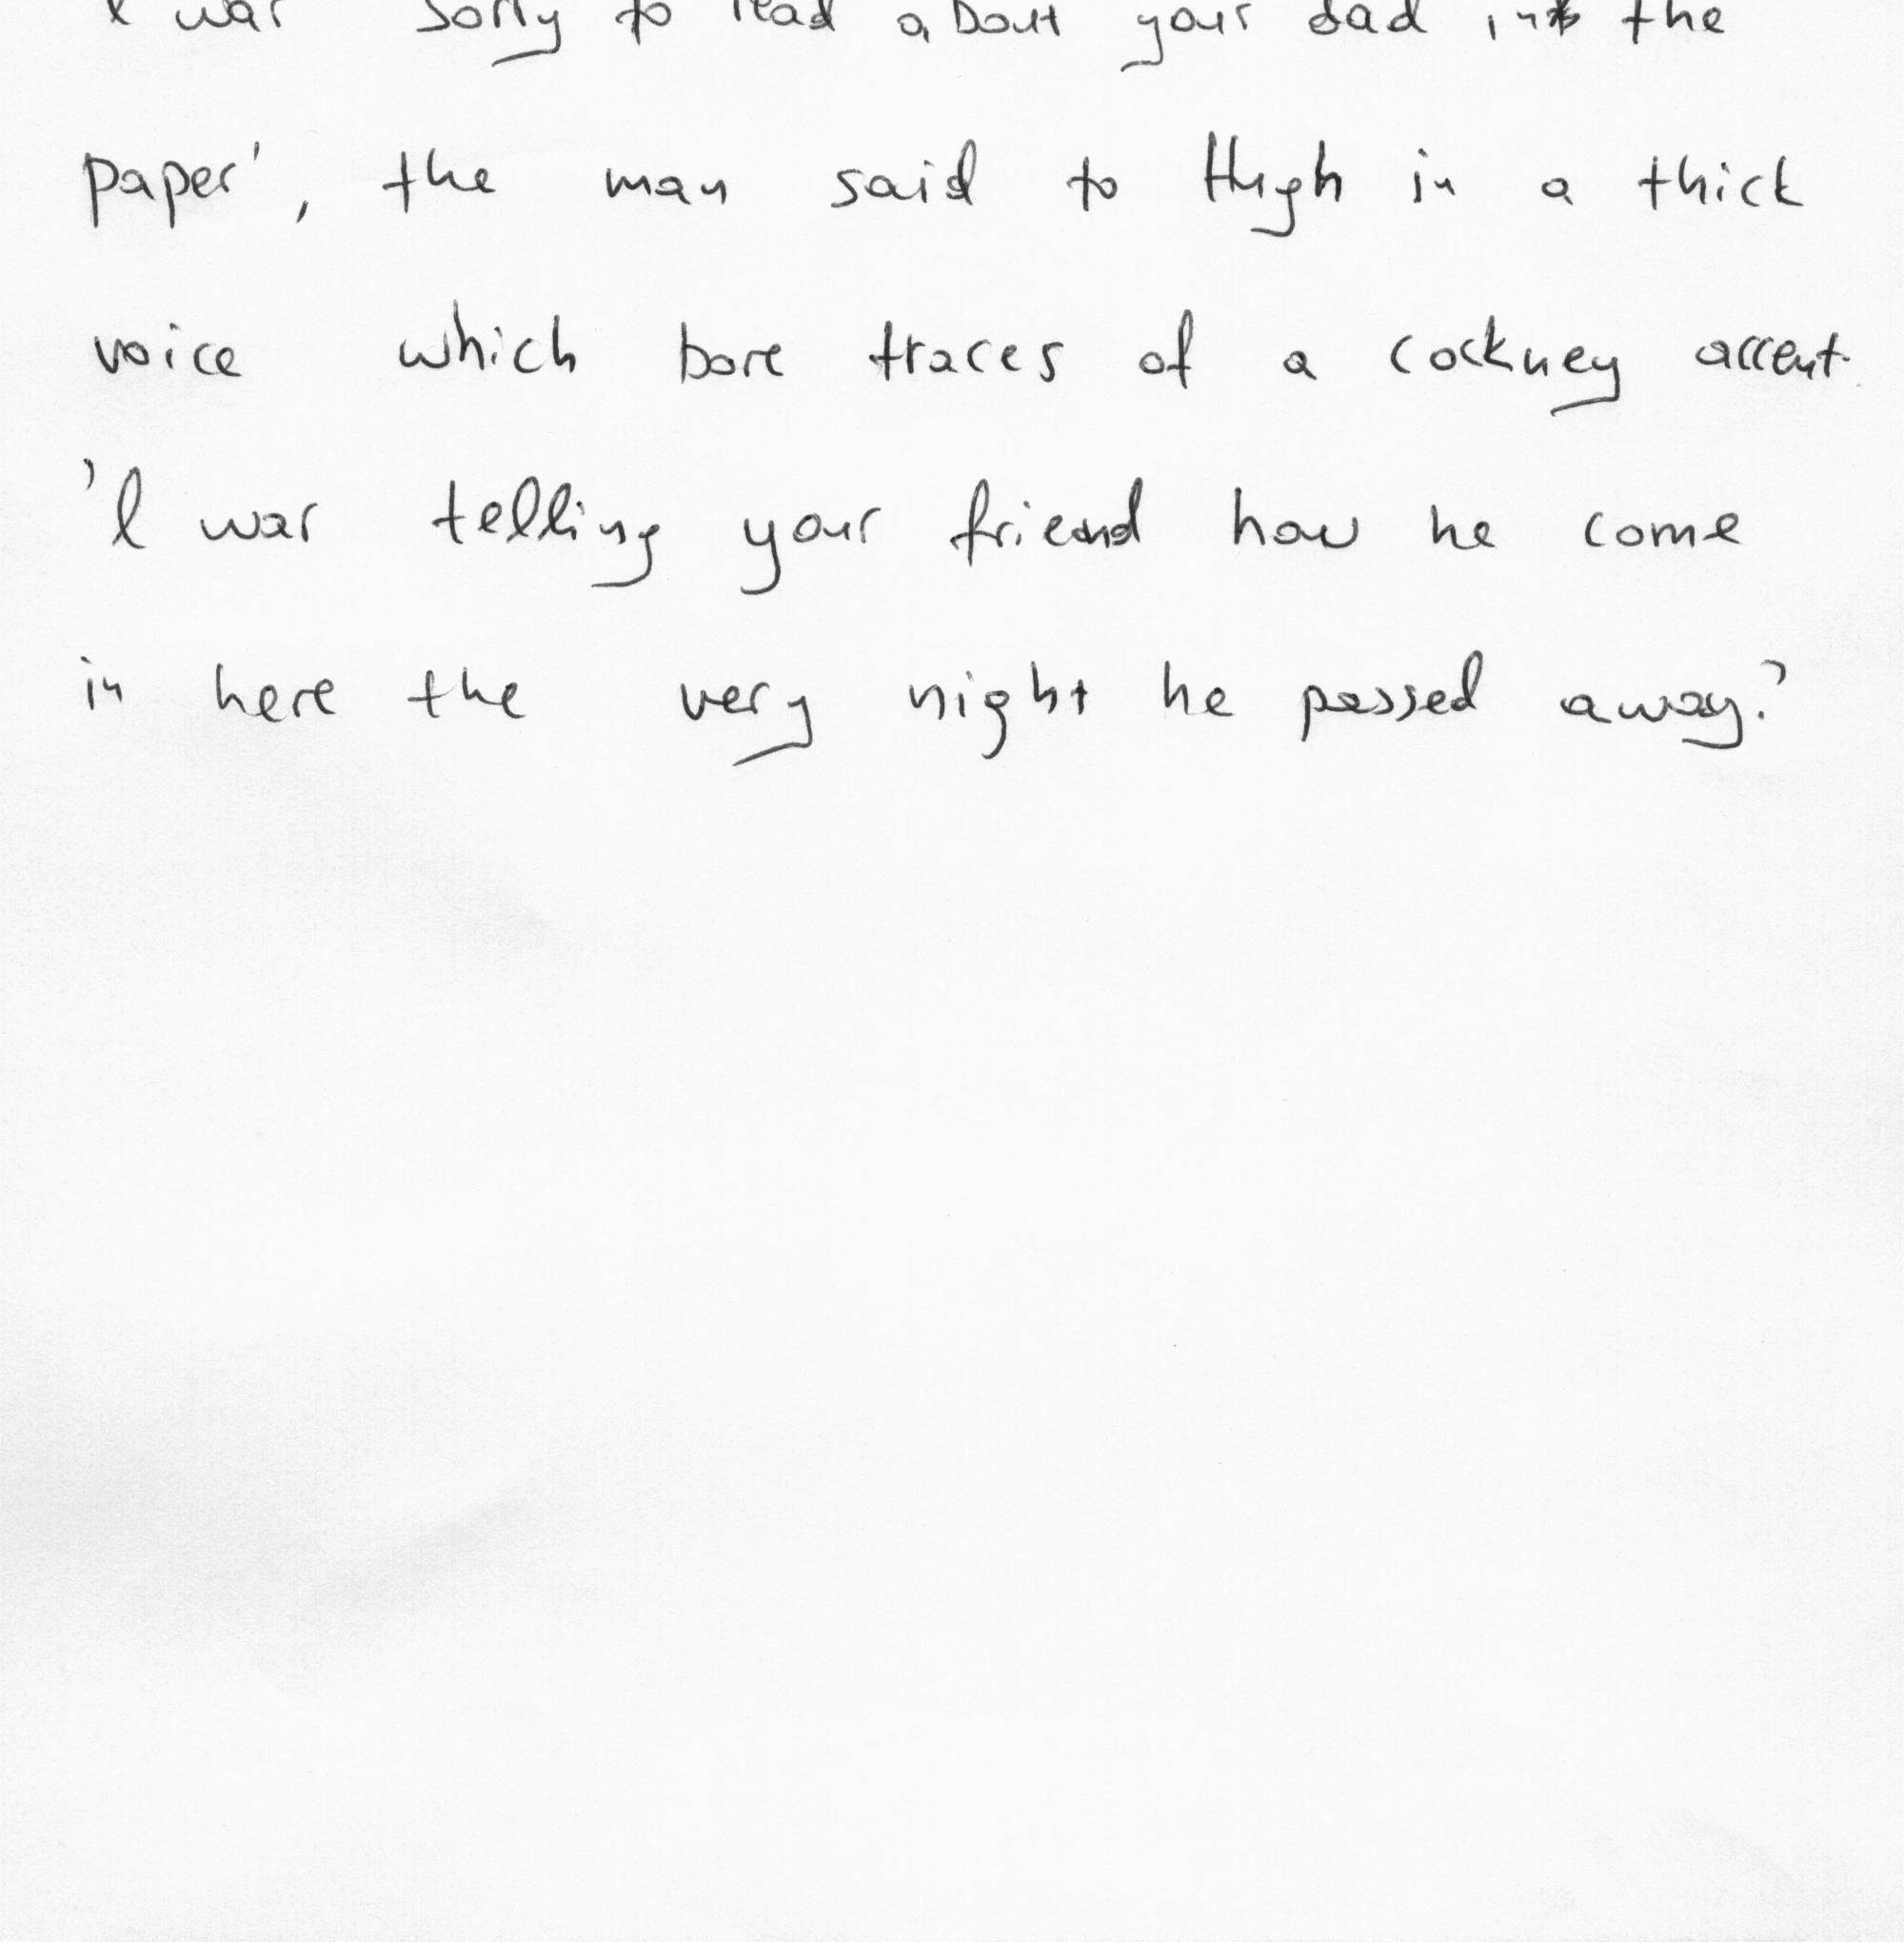 I was sorry to read about your dad in the
paper', the man said to Hugh in a thick
voice which bore traces of a cockney accent.
'I was telling your friend how he come
in here the very night he passed away.'